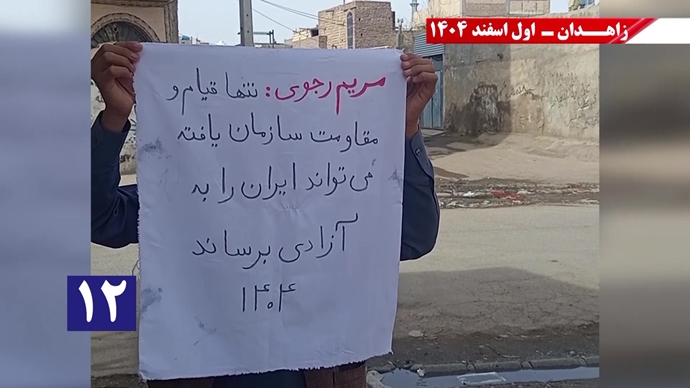 زاهـدان - اول اسفند ۱۴۰۴
مریم رجوی: تنها قیام و
مقاومت سازمان یافته
می تواند ایران را به
آزادی برساند
۱۴۰۴
۱۲